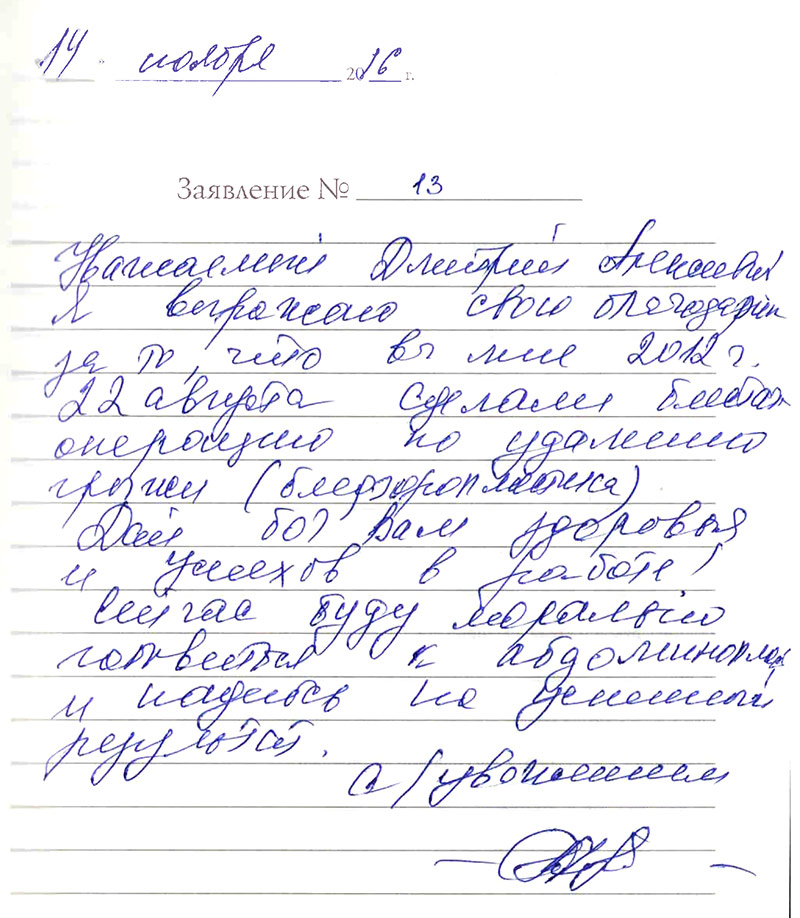 14 " ноября 2016 г.
Заявление № 13
Уважаемый Дмитрий Алексеевич
Я выражаю свою благодарн
за то, что вы мне 2012 г.
22 августа сделали блистат
операцию по удалению
грыжи (блефаропластика)
Дай бог Вам здоровья
и успехов в работе!
Сейчас буду морально
готовиться к абдоминопласт
и надеюсь на успешный
результат.
с/уважением